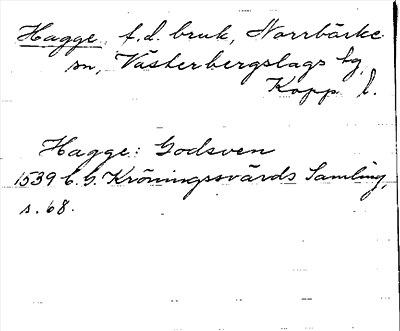 Hagge, f.d. bruk, Norrbärke
sn, Västerbergslags tg,
Kopp l.
Hagge: Godsven
1539 C.G. Kröningssvärds Samling,
s. 68.